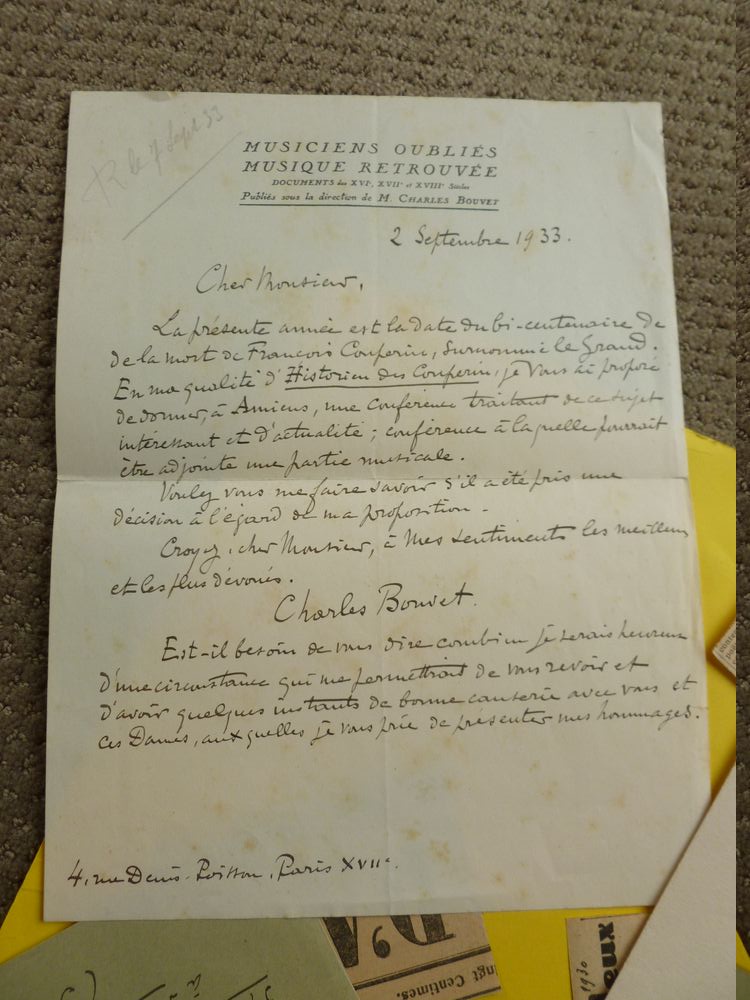 R le 7 Sept 33
MUSICIENS OUBLIÉS
MUSIQUE RETROUVÉE
DOCUMENTS des XVIᵉ, XVIIᵉ et XVIIIᵉ Siècles
Publiés sous la direction de M. CHARLES BOUVET
2 Septembre 1933.
Cher Monsieur,
La présente année est la date du bi-centenaire de
de la mort de François Couperin, surnommé le Grand.
En ma qualité d'Historien des Couperin, je vous ai proposé
de donner, à Amiens, une conférence traitant de ce sujet
intéressant et d'actualité ; conférence à laquelle pourrait
être adjointe une partie musicale.
Voulez vous me faire savoir s'il a été pris une
décision à l'égard de ma proposition.
Croyez, cher Monsieur, à mes sentiments les meilleurs
et les plus dévoués.
Charles Bouvet.
Est-il besoin de vous dire combien je serais heureux
d'une circonstance qui me permettrait de vous revoir et
d'avoir quelques instants de bonne causerie avec vous et
ces Dames, auxquelles je vous prie de présenter mes hommages.
4, rue Denis-Poisson, Paris XVIIᵉ.
D'A
ngt Centimes.
1930
eux